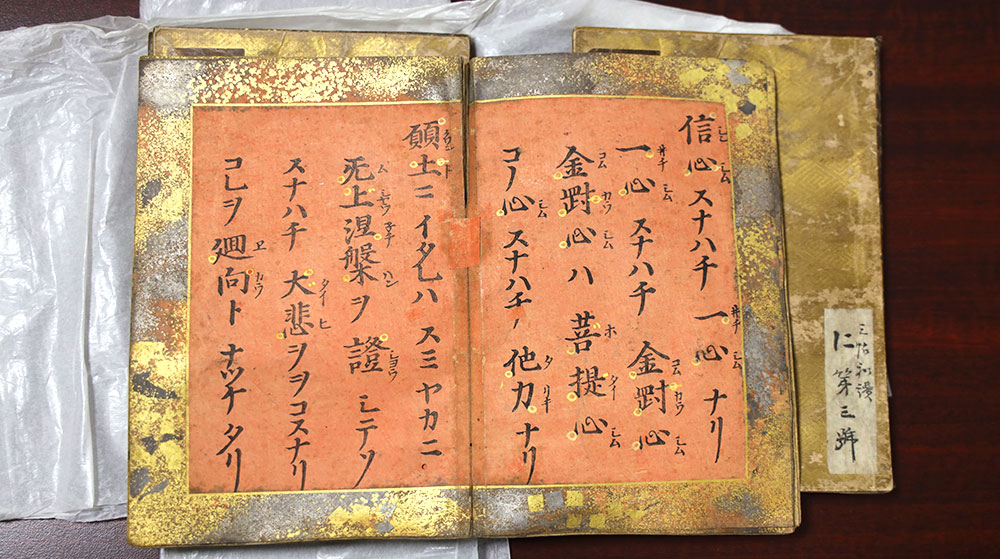 信心スナハチ一心ナリ
一心スナハチ金剛心
金剛心ハ菩提心
コノ心スナハチ他力ナリ
願土ニイタレハスミヤカニ
无上涅槃ヲ證シテソ
スナハチ大悲ヲヲコスナリ
コレヲ廻向トナツケタリ
三帖和讃
仁第三號